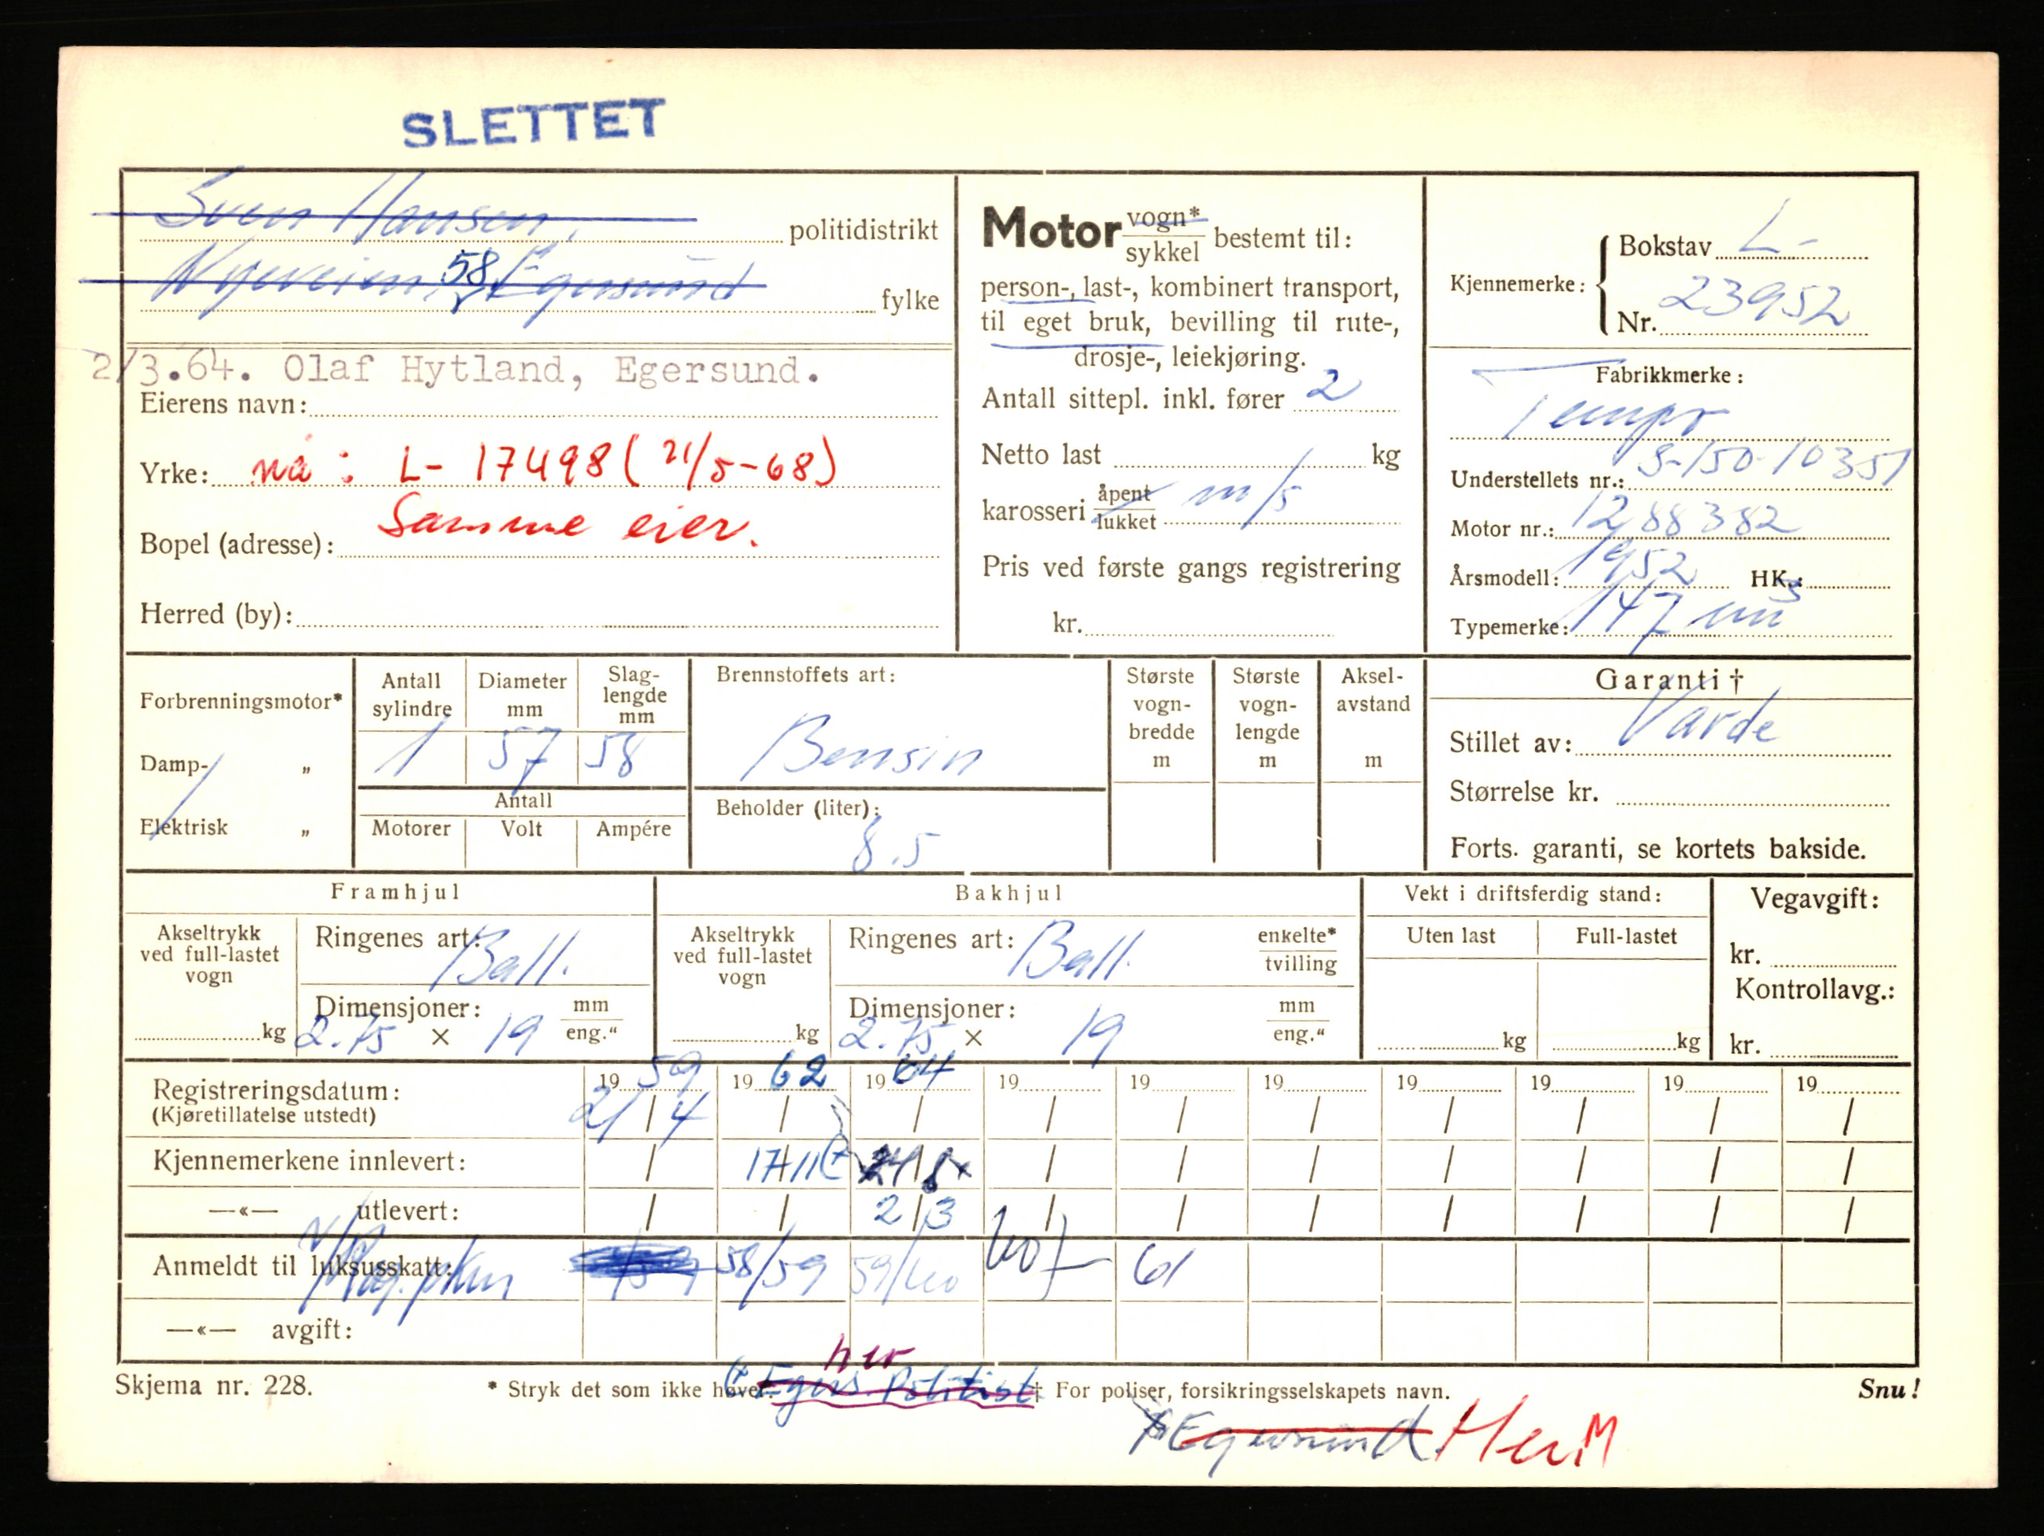 SLETTET
Sven Hansen,
politidistrikt
Nyeveien 58, Egersund
fylke
2/3.64. Olaf Hytland, Egersund.
Eierens navn:
Yrke: nå: L- 17498 (21/5-68)
Samme eier.
Bopel (adresse):
Herred (by):
Motor vogn* / sykkel bestemt til:
person-, last-, kombinert transport,
til eget bruk, bevilling til rute-,
drosje-, leiekjøring.
Antall sittepl. inkl. fører 2
Netto last kg
karosseri åpent / lukket m/s
Pris ved første gangs registrering
kr.
Kjennemerke: Bokstav L-
Nr. 23952
Fabrikkmerke:
Tempo
Understellets nr.: S-150-10351
Motor nr.: 1288382
Årsmodell: 1952 HK.:
Typemerke: 147 cm³
Forbrenningsmotor*
Damp- „
Elektrisk „
Antall sylindre
1
Diameter mm
57
Slag-lengde mm
58
Antall
Motorer Volt Ampére
Brennstoffets art:
Bensin
Beholder (liter):
8.5
Største vogn-bredde m
Største vogn-lengde m
Aksel-avstand m
Garanti †
Stillet av: Varde
Størrelse kr.
Forts. garanti, se kortets bakside.
Framhjul
Akseltrykk ved full-lastet vogn
kg
Ringenes art: Ball.
Dimensjoner: mm / eng."
2.75 × 19
Bakhjul
Akseltrykk ved full-lastet vogn
kg
Ringenes art: Ball. enkelte* / tvilling
Dimensjoner: mm / eng."
2.75 × 19
Vekt i driftsferdig stand:
Uten last Full-lastet
kg kg
Vegavgift:
kr.
Kontrollavg.:
kr.
Registreringsdatum: 19 59 19 62 19 64 19 19 19 19 19 19 19
(Kjøretillatelse utstedt) 21/4 / / / / / / / / /
Kjennemerkene innlevert: / 17/11 (+ / / / / / / / /
—«— utlevert: / / 2/3 / / / / / / /
Anmeldt til luksusskatt: 58/59 59/60 60/ 61
—«— avgift:
her
Skjema nr. 228. * Stryk det som ikke høver. (+ Egers. Politist. † For poliser, forsikringsselskapets navn. Snu!
Egersund Her. M